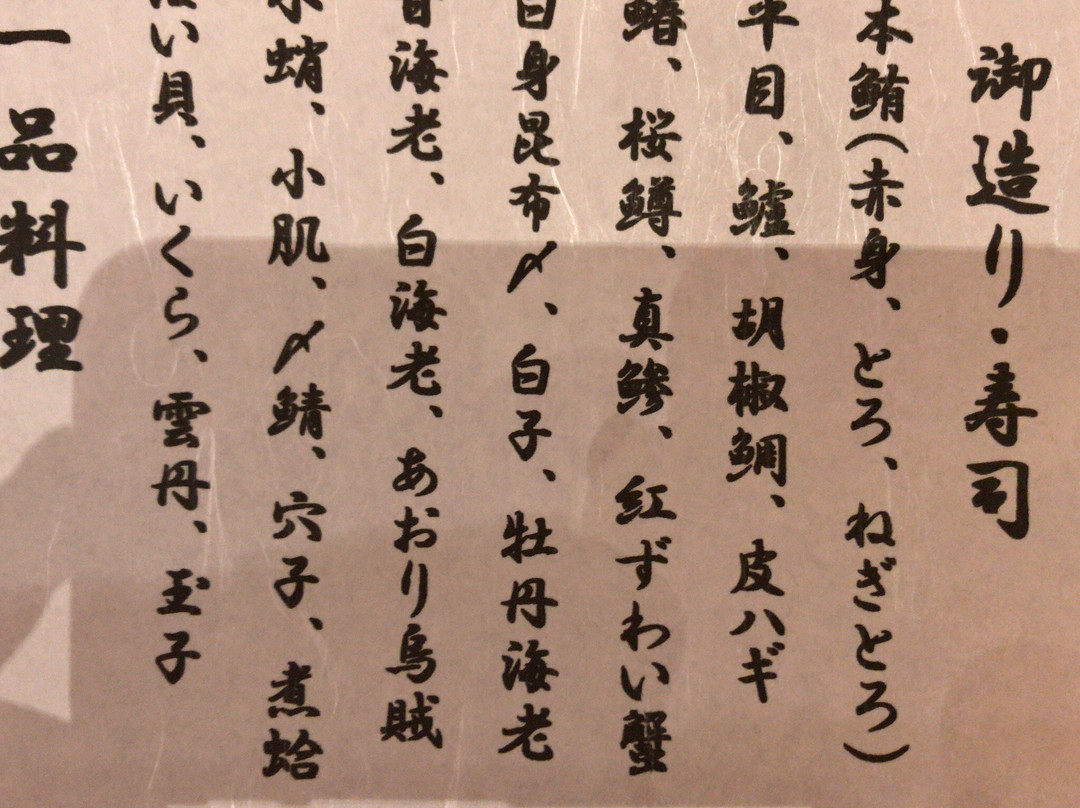 御造り・寿司
本鮪(赤身、とろ、ねぎとろ)
平目、鱸、胡椒鯛、皮ハギ
鰆、桜鱒、真鯵、紅ずわい蟹
白身昆布〆、白子、牡丹海老
海老、白海老、あおり烏賊
蛸、小肌、〆鯖、穴子、煮蛤
い貝、いくら、雲丹、玉子
一品料理